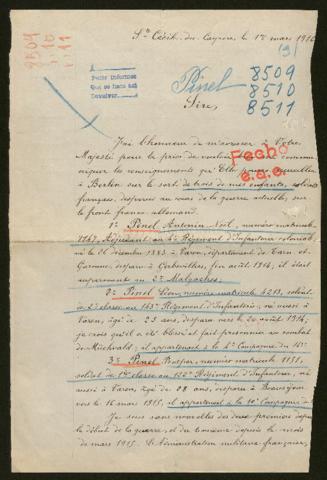 Ste Cécile du Cayrou, le 1er mars 1916
8509
8510
8511
Pinel
8509
8510
8511
Sire,
J'ai l'honneur de m'adresser à Votre
Majesté pour la prier de vouloir
niquer les renseignements qu'Elle
Fecho
à Berlin sur le sort de trois de mes enfants, soldats
français, disparus au cours de la guerre actuelle, sur
le front franco-allemand.
1° Pinel Antonin Noël, numéro matricule
1967, Adjudant au 6e Régiment d'Infanterie coloniale,
né le 25 décembre 1883 à Varen, département de Tarn-et-
Garonne, disparu à Gerbevillers, fin août 1914, il était
auparavant au 2e Malgaches.
2° Pinel Léon, numéro matricule 4213, soldat
de 2e classe au 143e Régiment d'Infanterie, né aussi à
Varen, âgé de 23 ans, disparu vers le 20 août 1914,
je crois qu'il a été blessé et fait prisonnier au combat
de il appartenait à la Compagnie du 16e
3° Pinel Prosper, numéro matricule 1151,
soldat de 1re classe au 122e Régiment d'Infanterie, né
aussi à Varen, âgé de 28 ans, disparu à Beauséjour
vers le 16 mars 1915, il appartenait à la 10e Compagnie
Je suis sans nouvelles des deux premiers depuis
le début de la guerre, et du troisième depuis le mois
de mars 1915. L'Administration militaire française,